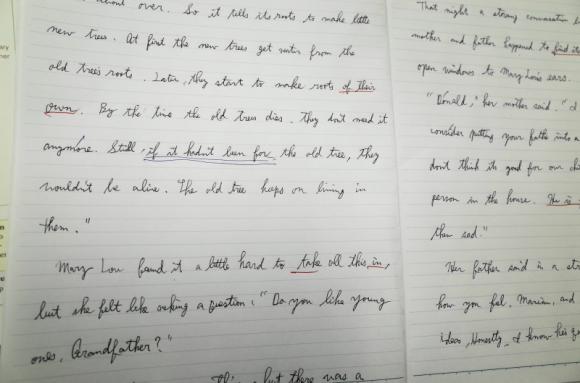 over. So it tells its roots to make little
new trees. At first the new trees get water from the
old tree's roots. Later, they start to make roots of their
own. By the time the old tree dies, they don't need it
anymore. Still, if it hadn't been for the old tree, they
wouldn't be alive. The old tree keeps on living in
them."
Mary Lou found it a little hard to take all this in,
but she felt like asking a question: "Do you like young
ones, Grandfather?"
but there was a
That night a strong conversation
mother and father happened to find its
open windows to Mary Lou's ears.
"Donald," her mother said. "I
consider putting your father into a
don't think it's good for our
person in the house. He is
then sad."
Her father said in a
how you feel, Marian, and
ideas. Honestly, I know he's